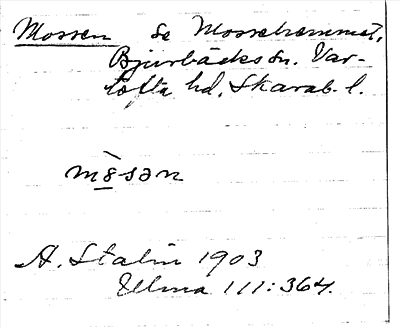 Mossen se Mossehemmet,
Bjurbäcks sn. Var-
tofta hd, Skarab. l.
A. Stalin 1903
Ulma 111:364.